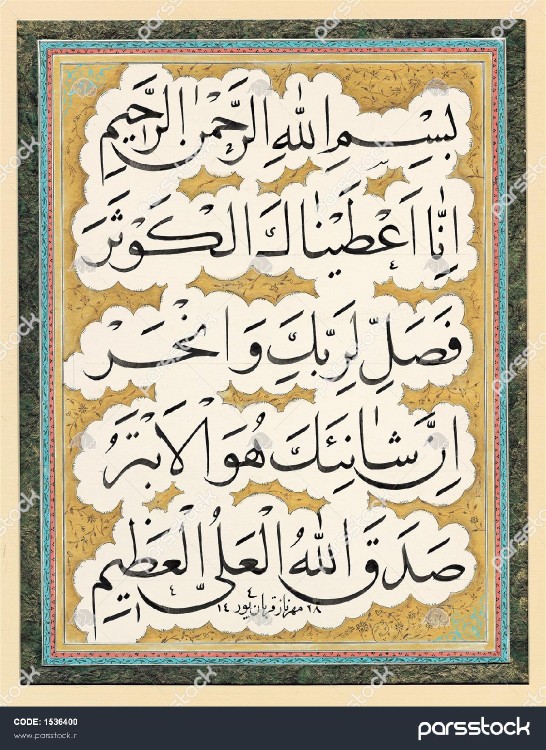 بِسْمِ اللهِ الرَّحْمنِ الرَّحیمِ
اِنّا اَعْطَیْناكَ الْكَوْثَرَ
فَصَلِّ لِرَبِّكَ وَ انْحَرْ
اِنَّ شانِئَكَ هُوَ الْاَبْتَرُ
صَدَقَ اللهُ الْعَلیُّ الْعَظیمُ
مهرناز قربان‌پور
CODE: 1536400
www.parsstock.ir
parsstock